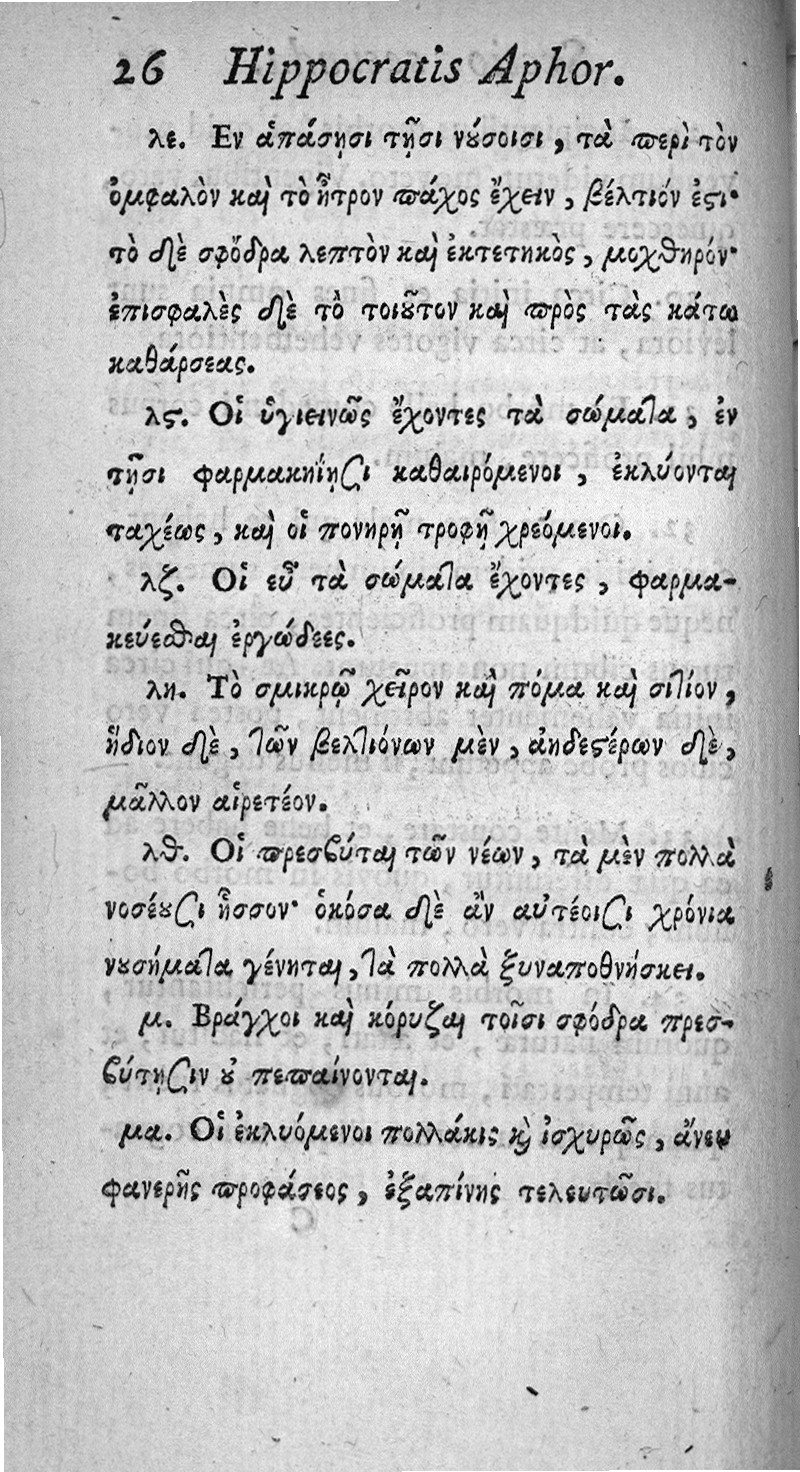 26 Hippocratis Aphor.
λε. Εν ἁπάσῃσι τῇσι νούσοισι, τὰ περὶ τὸν
ὀμφαλὸν καὶ τὸ ἦτρον πάχος ἔχειν, βέλτιόν ἐστι·
τὸ δὲ σφόδρα λεπτὸν καὶ ἐκτετηκὸς, μοχθηρόν·
ἐπισφαλὲς δὲ τὸ τοιοῦτον καὶ πρὸς τὰς κάτω
καθάρσεας.
λϛ. Οἱ ὑγιεινῶς ἔχοντες τὰ σώματα, ἐν
τῇσι φαρμακηΐῃσι καθαιρόμενοι, ἐκλύονται
ταχέως, καὶ οἱ πονηρῇ τροφῇ χρεόμενοι.
λζ. Οἱ εὖ τὰ σώματα ἔχοντες, φαρμα-
κεύεσθαι ἐργώδεες.
λη. Τὸ σμικρῷ χεῖρον καὶ πόμα καὶ σιτίον,
ἥδιον δὲ, τῶν βελτιόνων μὲν, ἀηδεστέρων δὲ,
μᾶλλον αἱρετέον.
λθ. Οἱ πρεσβύται τῶν νέων, τὰ μὲν πολλὰ
νοσέουσι ἧσσον· ὁκόσα δὲ ἂν αὐτέοισι χρόνια
νουσήματα γένηται, τὰ πολλὰ ξυναποθνήσκει.
μ. Βράγχοι καὶ κόρυζαι τοῖσι σφόδρα πρεσ-
βύτῃσιν οὐ πεπαίνονται.
μα. Οἱ ἐκλυόμενοι πολλάκις καὶ ἰσχυρῶς, ἄνευ
φανερῆς προφάσεος, ἐξαπίνης τελευτῶσι.